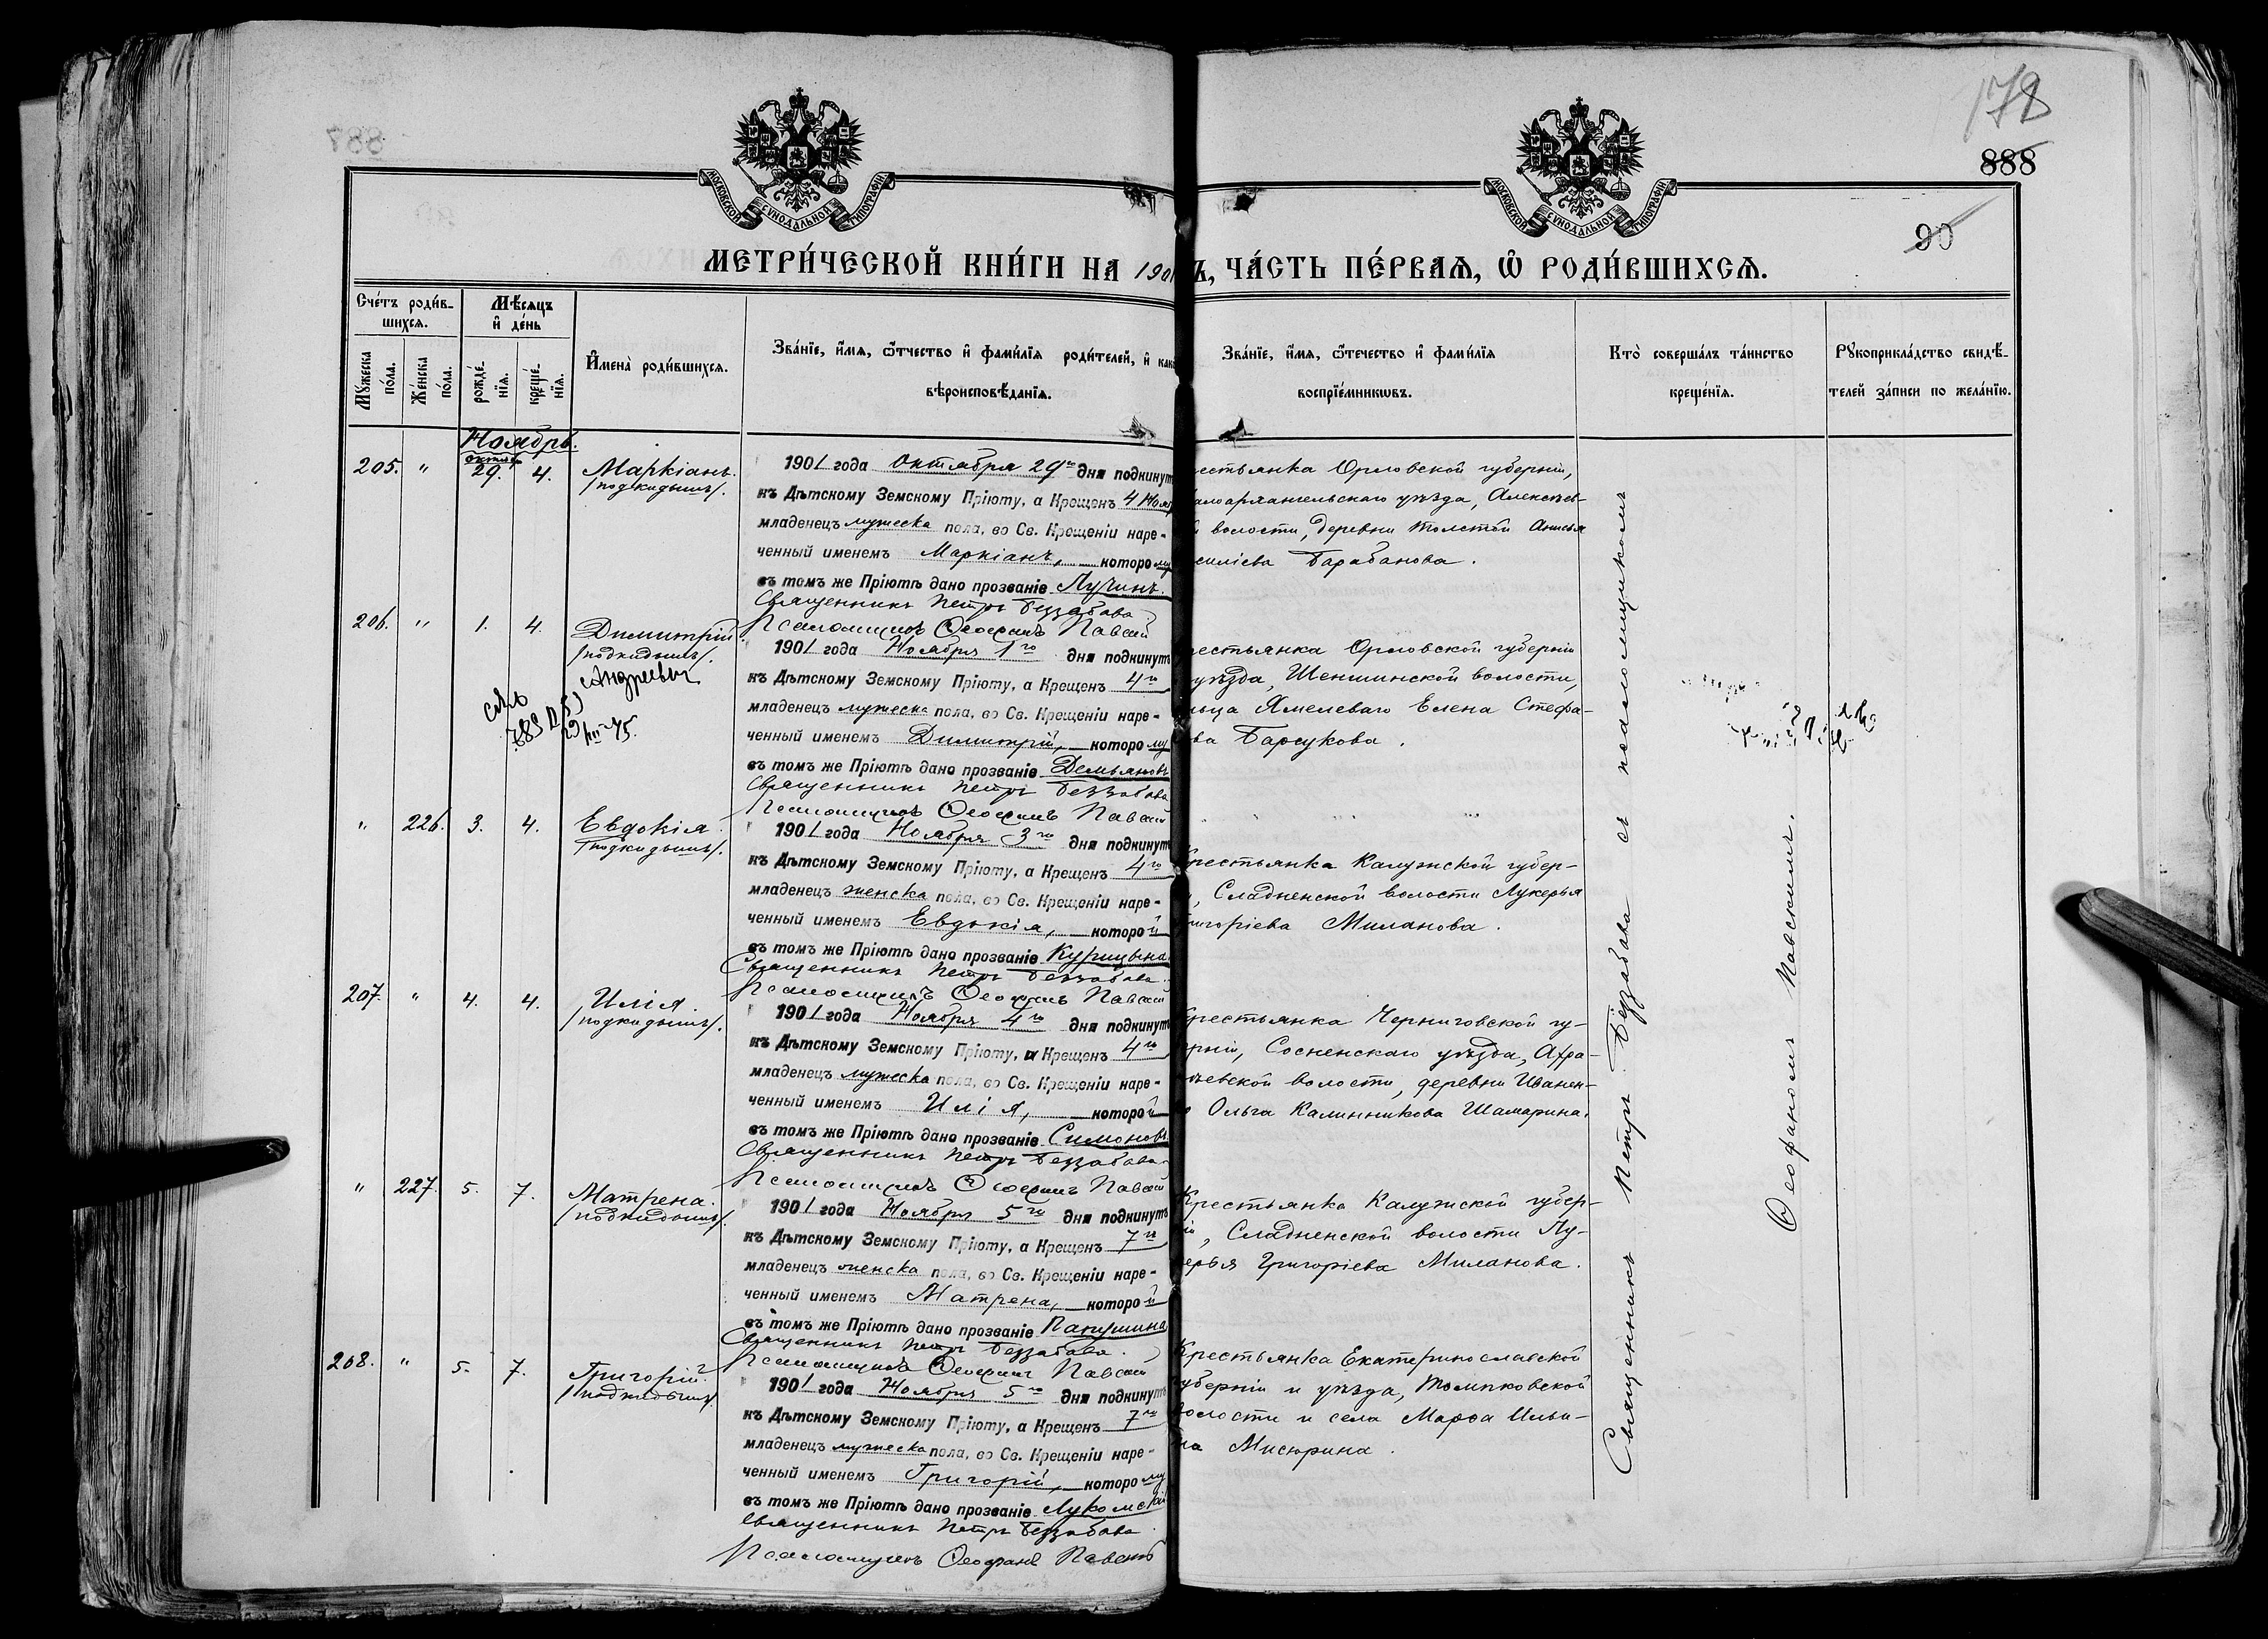 178
888
90
МОСКОВСКОЙ СѴНОДАЛЬНОЙ ТИПОГРАФІИ
МОСКОВСКОЙ СѴНОДАЛЬНОЙ ТИПОГРАФІИ
МЕТРИ́ЧЕСКОЙ КНИ́ГИ НА 1901
Ъ, ЧА́СТЬ ПЕ́РВАѦ, Ѡ҆ РОДИ́ВШИХСѦ.
Сче́тъ роди́в-
шихсѧ.
Мѣ́сѧцъ
и҆ де́нь
Мꙋжеска по́ла.
Же́нска по́ла.
рожде́-нїѧ.
креще́-нїѧ.
И҆мена̀ роди́вшихсѧ.
Зва́нїе, и҆́мѧ, ѻ҆́тчество и҆ фами́лїѧ роди́телей, и҆ как
вѣроисповѣ́данїѧ.
Зва́нїе, и҆́мѧ, ѻ҆́течество и҆ фами́лїѧ
воспрїе́мникѡвъ.
Кто̀ соверша́лъ та́инство
креще́нїѧ.
Рꙋкоприкла́дство свидѣ́-
телей за́писи по жела́нїю.
Ноябрь.
октяб.
205. " 29. 4. Маркіанъ.
/подкидышъ/.
1901 года октября 29го дня подкинут
къ Дѣтскому Земскому Пріюту, а Крещенъ 4 Нояб
младенецъ мужеска пола, во Св. Крещеніи наре-
ченный именемъ Маркіанъ, которому
въ томъ же Пріютѣ дано прозваніе Лучинъ.
Священникъ Петръ Беззабава
Псаломщикъ Ѳеофанъ Павскій
естьянка Орловской губерніи,
алоархангельскаго уѣзда, Алексѣев-
й волости, деревни Толстой Анисья
силіева Барабанова.
206. " 1. 4. Димитрій
/подкидышъ/.
Андреевич
1901 года Ноября 1го дня подкинутъ
къ Дѣтскому Земскому Пріюту, а Крещенъ 4го
младенецъ мужеска пола, во Св. Крещеніи наре-
ченный именемъ Димитрій, которому
въ томъ же Пріютѣ дано прозваніе Демьяновъ
Священникъ Петръ Беззабава
Псаломщикъ Ѳеофанъ Павскій
рестьянка Орловской губерніи
уѣзда, Шеншинской волости,
льца Ямелеваго Елена Стефа-
ва Барсукова.
" 226. 3. 4. Евдокія
/подкидышъ/.
1901 года Ноября 3го дня подкинут
къ Дѣтскому Земскому Пріюту, а Крещенъ 4го
младенецъ женска пола, во Св. Крещеніи наре-
ченный именемъ Евдокія, которой
въ томъ же Пріютѣ дано прозваніе Курицына
Священникъ Петръ Беззабава
Псаломщикъ Ѳеофанъ Павскій
рестьянка Калужской губер-
, Сладненской волости Лукерья
игоріева Миланова.
207. " 4. 4. Илія
/подкидышъ/.
1901 года Ноября 4го дня подкинут
къ Дѣтскому Земскому Пріюту, а Крещенъ 4го
младенецъ мужеска пола, во Св. Крещеніи наре-
ченный именемъ Илія, которой
въ томъ же Пріютѣ дано прозваніе Симоновъ
Священникъ Петръ Беззабава
Псаломщикъ Ѳеофанъ Павскій
рестьянка Черниговской гу-
рніи, Сосненскаго уѣзда, Афа-
ьевской волости, деревни Иванен-
Ольга Калинникова Шамарина.
" 227. 5. 7. Матрена.
/подкидышъ/.
1901 года Ноября 5го дня подкинутъ
къ Дѣтскому Земскому Пріюту, а Крещенъ 7го
младенецъ женска пола, во Св. Крещеніи наре-
ченный именемъ Матрена, которой
въ томъ же Пріютѣ дано прозваніе Папушина
Священникъ Петръ Беззабава.
Псаломщикъ Ѳеофанъ Павскій
Крестьянка Калужской губер-
, Сладненской волости Лу-
ерья Григоріева Миланова.
208. " 5. 7. Григорій
/подкидышъ/.
1901 года Ноября 5го дня подкинутъ
къ Дѣтскому Земскому Пріюту, а Крещенъ 7го
младенецъ мужеска пола, во Св. Крещеніи наре-
ченный именемъ Григорій, которому
въ томъ же Пріютѣ дано прозваніе Лукомскій
Священникъ Петръ Беззабава
Псаломщикъ Ѳеофанъ Павскій
Крестьянка Екатеринославской
уберніи и уѣзда, Томаковской
волости и села Марѳа Ильи-
на Мисюрина.
Священникъ Петръ Беззабава съ псаломщикомъ
Ѳеофаномъ Павскимъ.